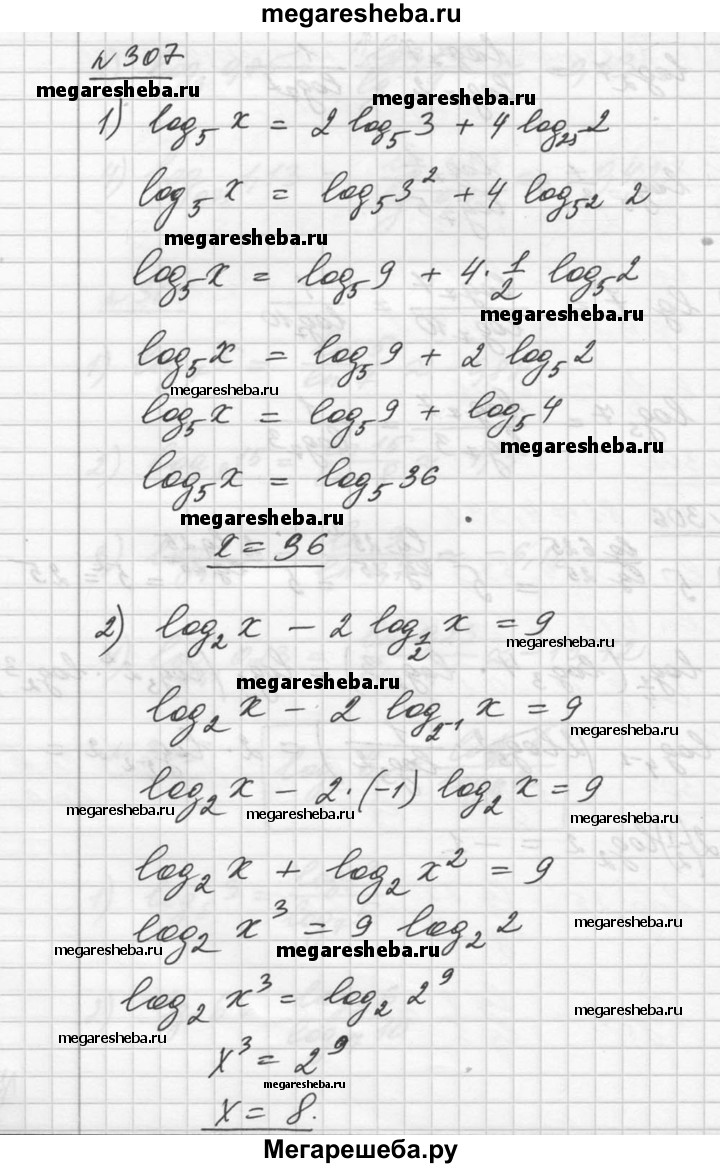 megaresheba.ru
№307
megaresheba.ru
megaresheba.ru
1) log₅ x = 2 log₅ 3 + 4 log₂₅ 2
log₅ x = log₅ 3² + 4 log₅² 2
megaresheba.ru
log₅ x = log₅ 9 + 4 · 1/2 log₅ 2
megaresheba.ru
log₅ x = log₅ 9 + 2 log₅ 2
megaresheba.ru
log₅ x = log₅ 9 + log₅ 4
megaresheba.ru
log₅ x = log₅ 36
megaresheba.ru
x = 36
2) log₂ x − 2 log_{1/2} x = 9
megaresheba.ru
megaresheba.ru
log₂ x − 2 log_{2⁻¹} x = 9
megaresheba.ru
log₂ x − 2 · (−1) log₂ x = 9
megaresheba.ru
megaresheba.ru
megaresheba.ru
log₂ x + log₂ x² = 9
log₂ x³ = 9 log₂ 2
megaresheba.ru
megaresheba.ru
megaresheba.ru
log₂ x³ = log₂ 2⁹
megaresheba.ru
megaresheba.ru
x³ = 2⁹
megaresheba.ru
x = 8.
Мегарешеба.ру